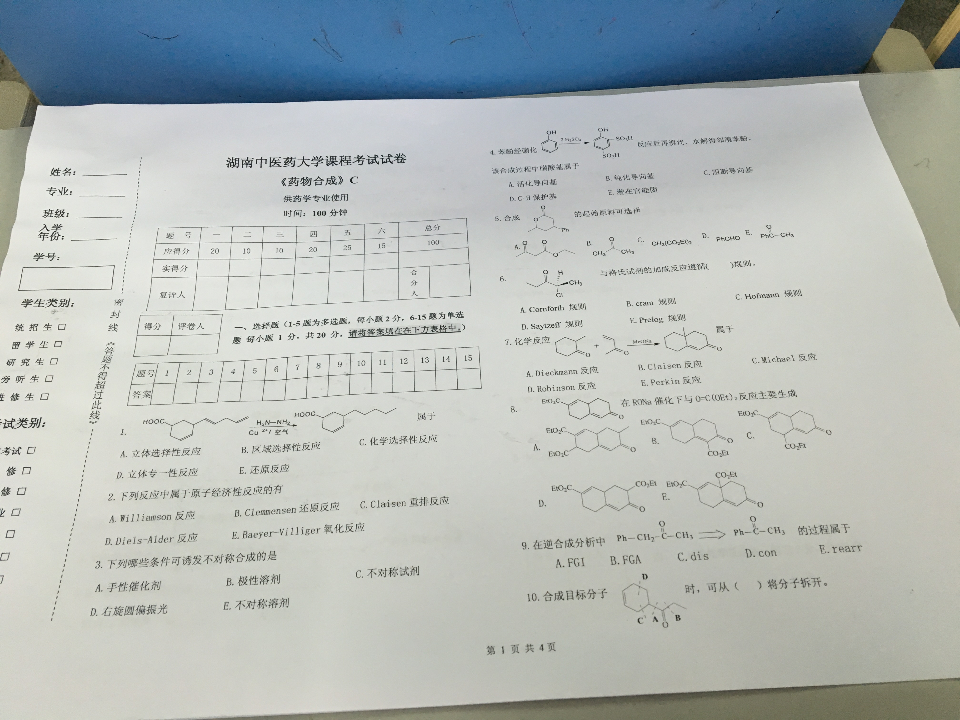 姓名：
专业：
班级：
入学
年份：
学号：
学生类别：
统 招 生 □
留 学 生 □
研 究 生 □
旁 听 生 □
进 修 生 □
考试类别：
考试 □
修 □
修 □
业 □
□
□
□
密
封
线
《答题不得超过此线》
湖南中医药大学课程考试试卷
《药物合成》C
供药学专业使用
时间：100 分钟
题 号 一 二 三 四 五 六 总分
应得分 20 10 10 20 25 15 100
实得分
复评人 合分人
得分 评卷人
一、选择题（1-5题为多选题，每小题2分，6-15题为单选
题 每小题 1 分，共 20 分，请将答案填在在下方表格中。）
题号 1 2 3 4 5 6 7 8 9 10 11 12 13 14 15
答案
1. HOOC H₂N—NH₂ Cu²⁺/空气 HOOC 属于
A. 立体选择性反应 B. 区域选择性反应 C. 化学选择性反应
D. 立体专一性反应 E. 还原反应
2. 下列反应中属于原子经济性反应的有
A. Williamson 反应 B. Clemmensen 还原反应 C. Claisen 重排反应
D. Diels-Alder 反应 E. Baeyer-Villiger 氧化反应
3. 下列哪些条件可诱发不对称合成的是
A. 手性催化剂 B. 极性溶剂 C. 不对称试剂
D. 右旋圆偏振光 E. 不对称溶剂
4. 苯酚经磺化 OH OH SO₃H SO₃H
该合成过程中磺酸基属于
A. 活化导向基 B. 钝化导向基
D. 保护基 E. 潜在官能团
5. 合成 O O Ph 的起始原料可选择
A. O O O B. O CH₃ C. CH₂(CO₂Et)₂ D. PhCHO E. O Ph-C-CH₃
6. O H CH₃ Cl 与格氏试剂的加成反应遵循( )规则。
A. Cornforth 规则 B. cram 规则 C. Hofmann 规则
D. Saytzeff 规则 E. Prelog 规则
7. 化学反应 O + O O 属于
A. Dieckmann 反应 B. Claisen 反应 C. Michael 反应
D. Robinson 反应 E. Perkin 反应
8. EtO₂C O 在 RONa 催化下与 O=C(OEt)₂ 反应主要生成
A. EtO₂C EtO₂C O B. EtO₂C CO₂Et O C. EtO₂C CO₂Et O
D. EtO₂C CO₂Et O E. EtO₂C CO₂Et O
9. 在逆合成分析中 Ph—CH₂—C(O)—CH₃ ⟹ Ph—C(O)—CH₃ 的过程属于
A. FGI B. FGA C. dis D. con E. rearr
10. 合成目标分子 D C A B O 时，可从（ ）将分子拆开。
第 1 页 共 4 页